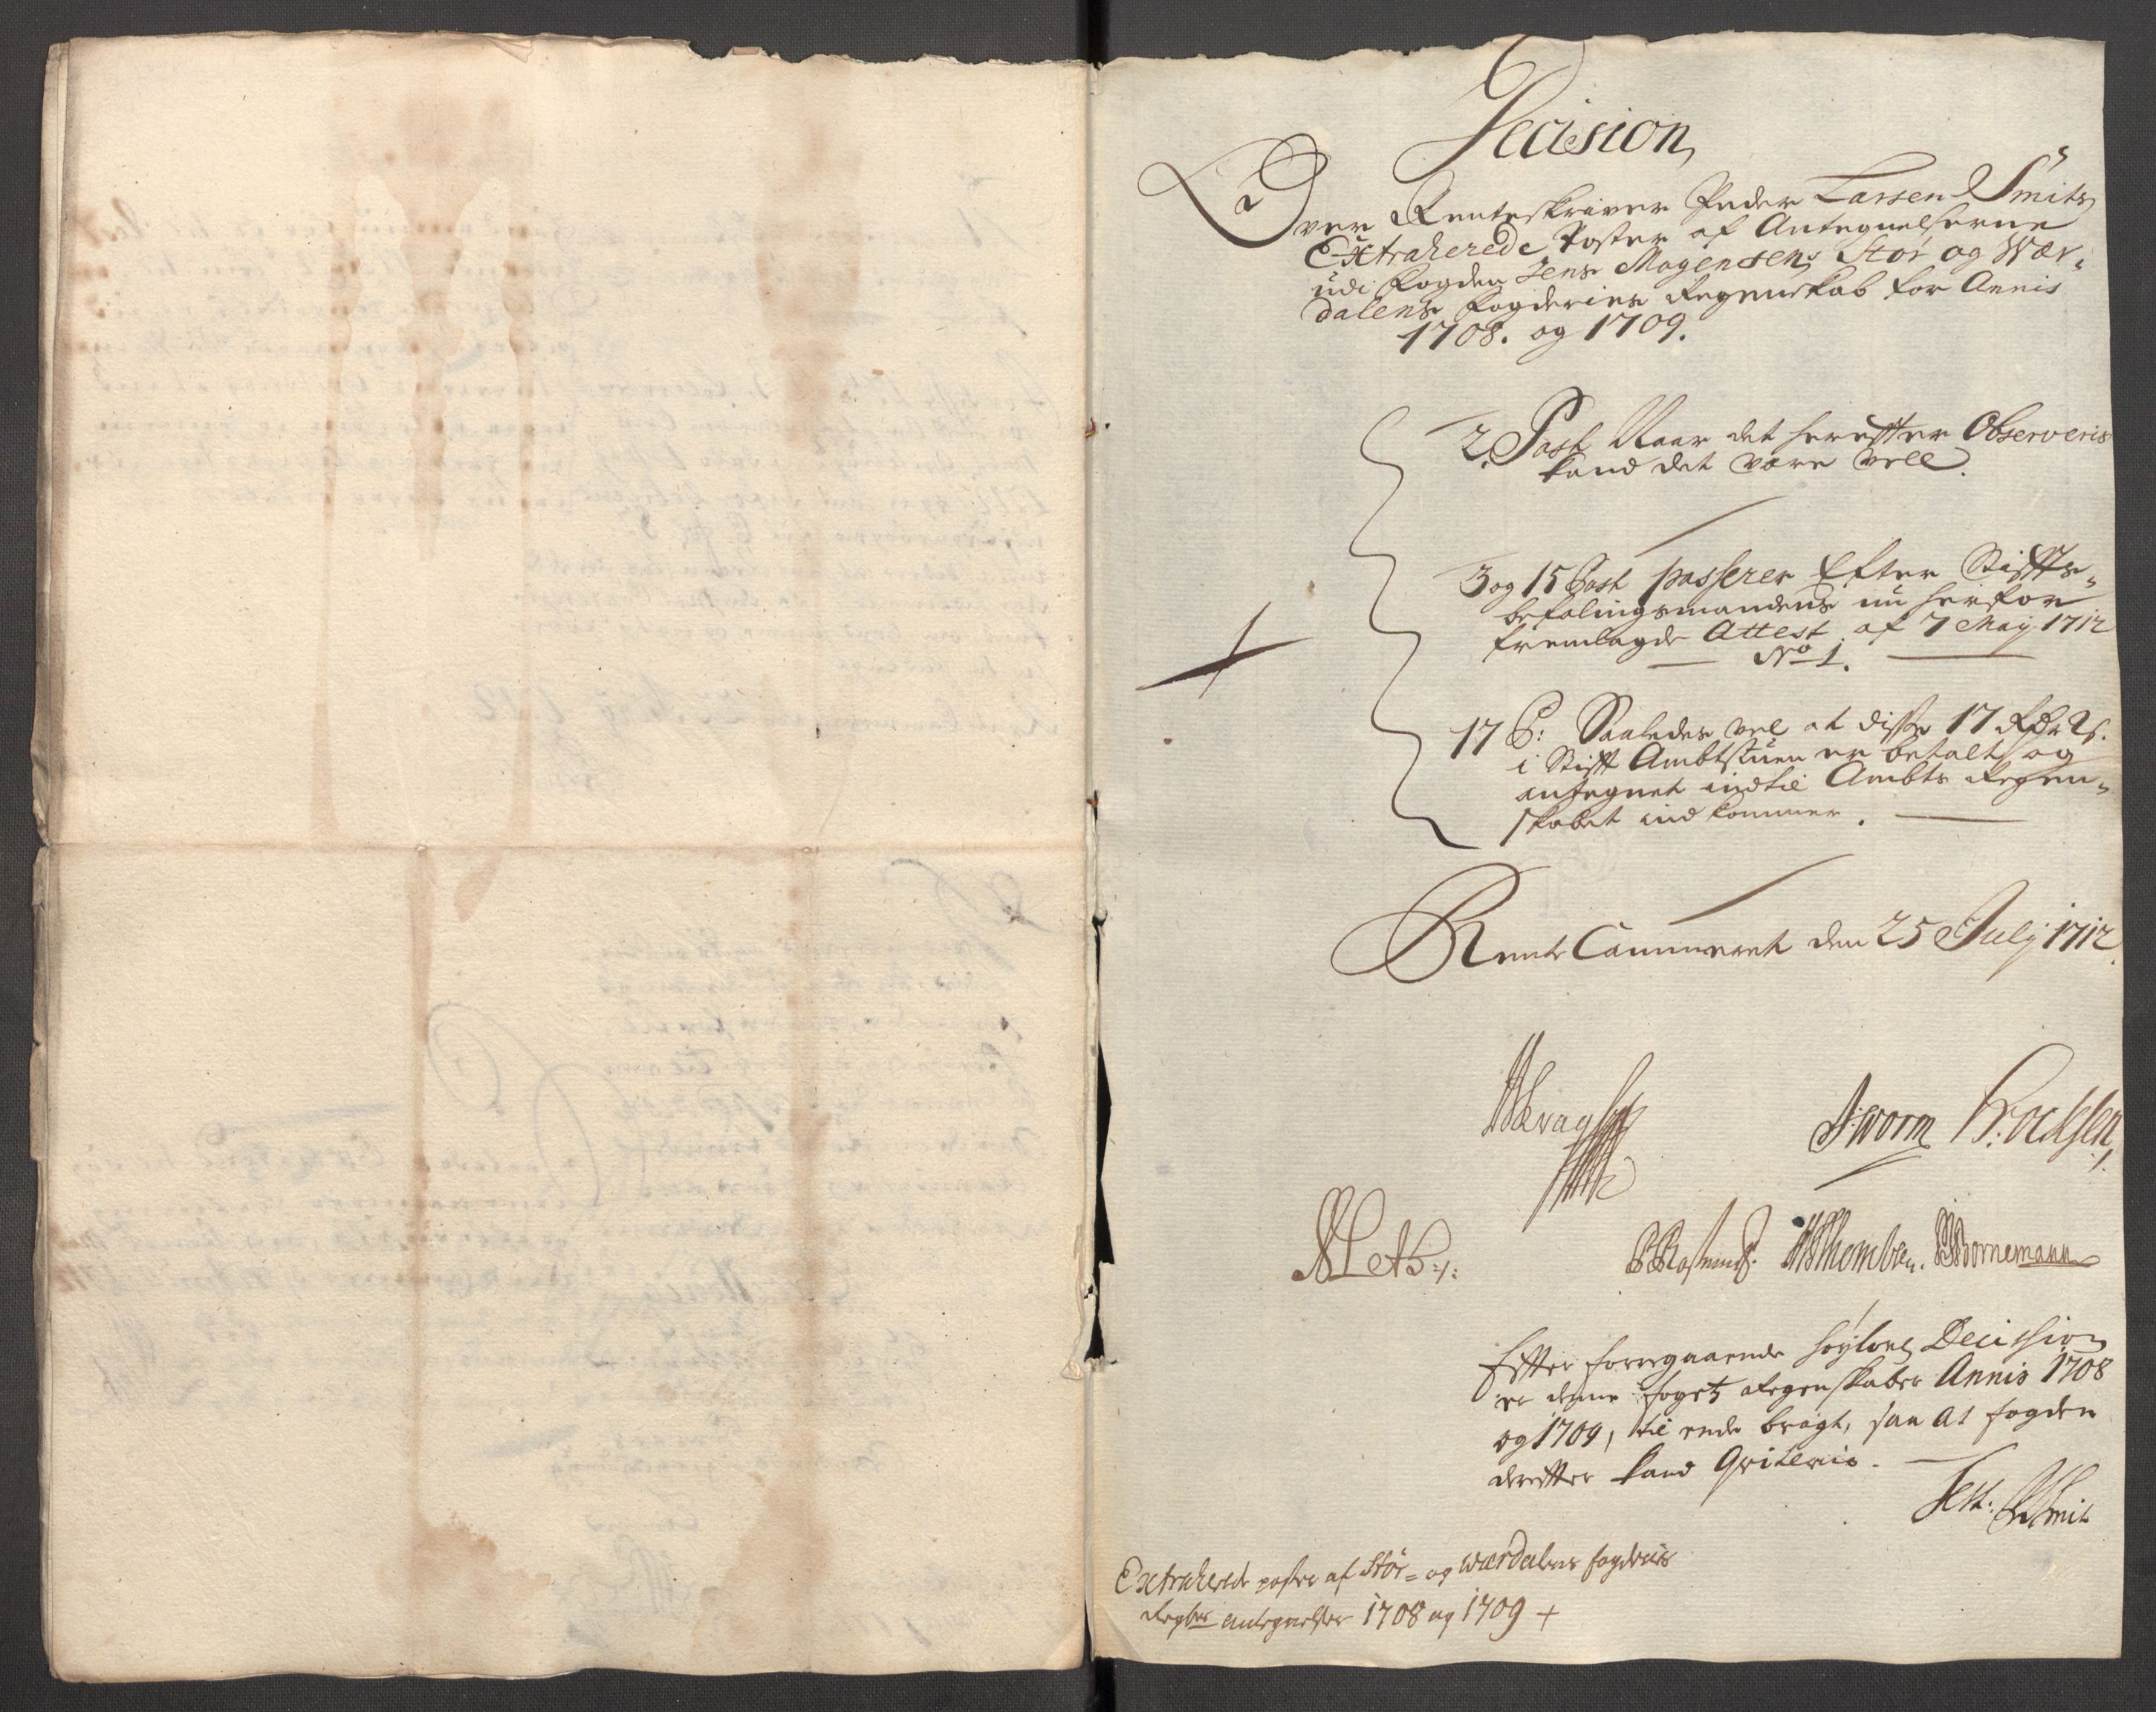 Decision
Over Renteskriver Peder Larsen Smits
Extraherede Poster af Antegnelserne
udi Fogden Jens Mogensens Stør og Wær-
dalens Fogderies Regenskab for Annis
1708. og 1709.
2. Post Naar det herefter Observeris
kand det være vell.
3 og 15 Post passerer Efter Stiffts-
befalingsmandens nu herfor
fremlagde Attest af 7 Maij 1712
No 1.
17 P: Saaledes vel at disse 17 Rdr
i Stifft Ambtstuen er betalt og
antegnet indtil Ambts Regen-
skabet ind kommer.
Rente Cammeret den 25 Julij 1712.
Worm
Bornemann
Effter foregaaende høylovl Decission
er denne fogetz Regenskaber Annis 1708
og 1709, til ende bragt, saa at fogden
derefter kand Qviteris.
Test: Smit
Extraherede poster af Stør- og Wærdalens fogderis
Regskr antegnelser 1708 og 1709 +